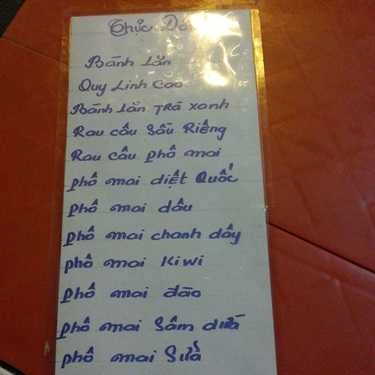 Thực Đơn
Bánh Lăn
Quy Linh Cao
Bánh Lăn Trà xanh
Rau câu Sầu Riêng
Rau câu phô mai
phô mai diệt Quốc
phô mai dâu
phô mai chanh dây
phô mai Kiwi
phô mai đào
phô mai Sâm dứa
phô mai Sữa